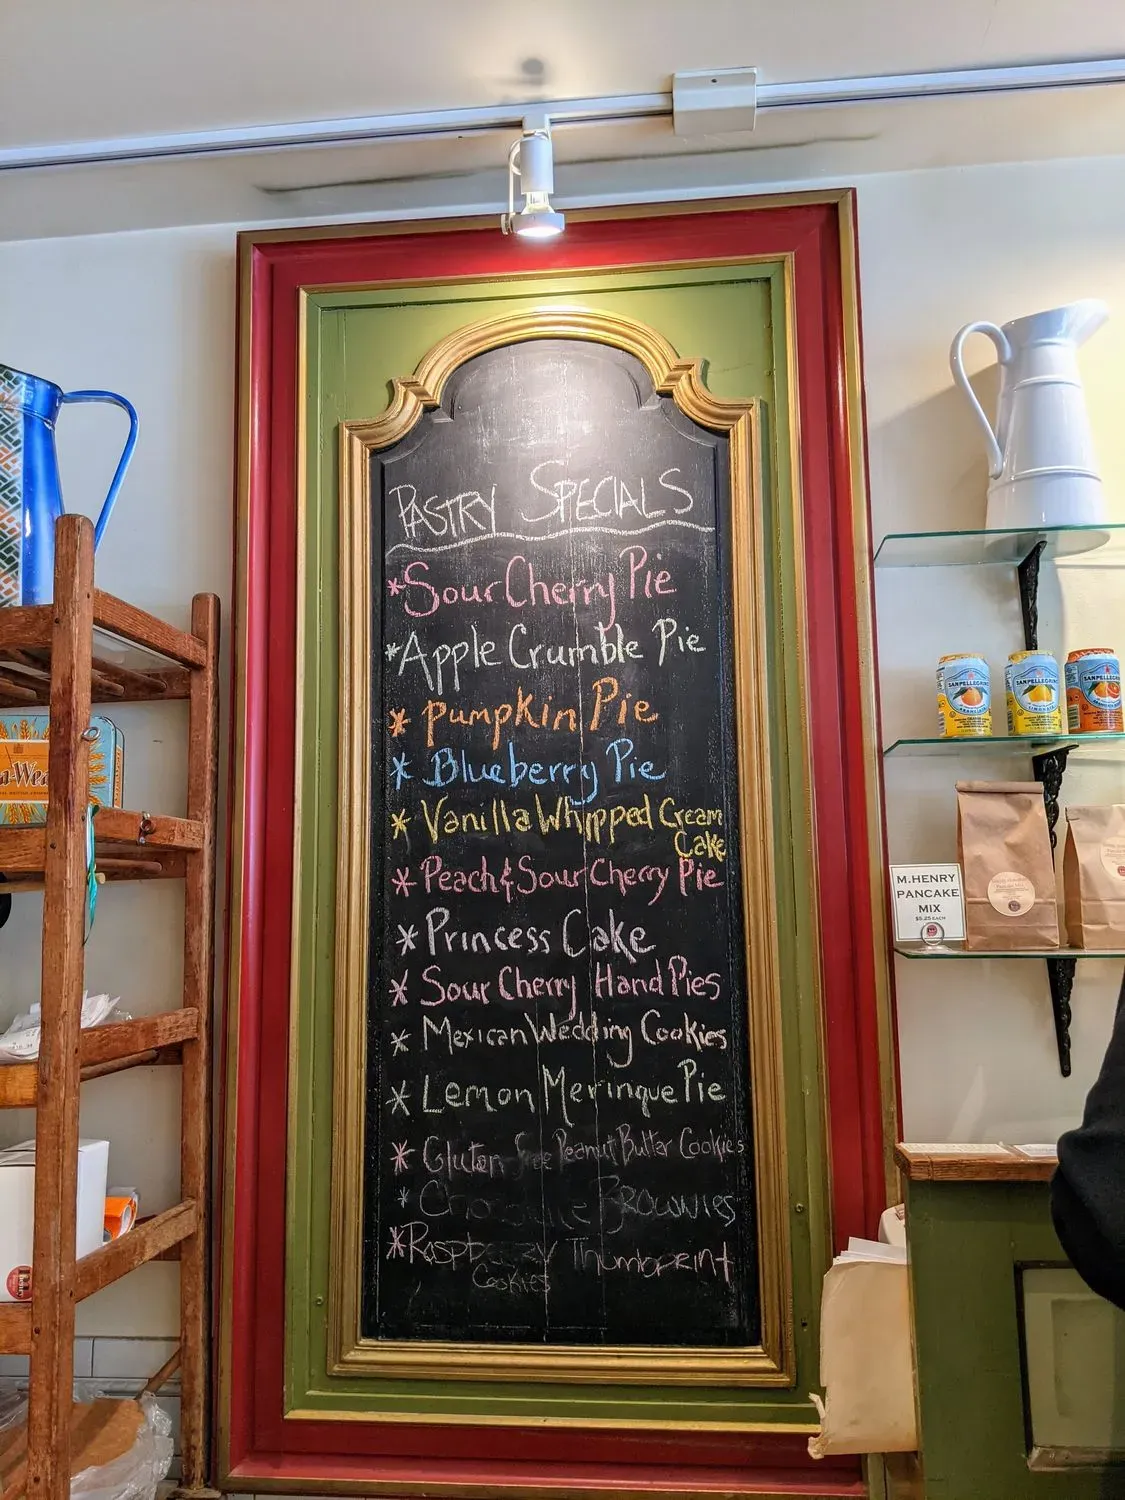 PASTRY SPECIALS
*Sour Cherry Pie
*Apple Crumble Pie
* pumpkin Pie
* Blueberry Pie
* Vanilla Whipped Cream
Cake
* Peach & Sour Cherry Pie
* Princess Cake
* Sour Cherry Hand Pies
* Mexican Wedding Cookies
* Lemon Meringue Pie
* Gluten free Peanut Butter Cookies
* Chocolate BROWNIES
*Raspberry Thumbprint
Cookies
SANPELLEGRINO
ARANCIATA
SANPELLEGRINO
LIMONATA
SANPELLEGRINO
M.HENRY
PANCAKE
MIX
$5.25 EACH